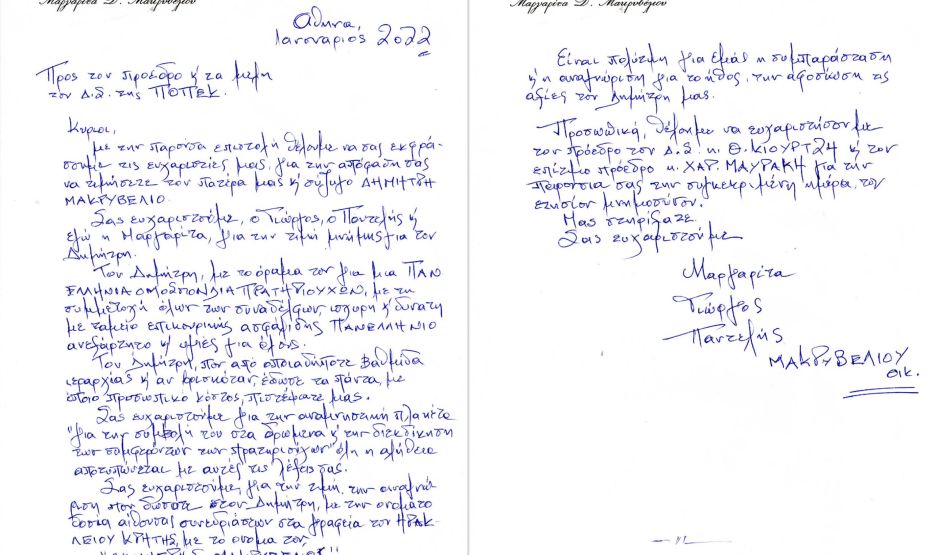 Μαργαρίτα Δ. Μακρυβελίου
Αθήνα,
Ιανουάριος 2022
Προς τον πρόεδρο & τα μέλη
του Δ.Σ. της ΠΟΠΕΚ.
Κύριοι,
με την παρούσα επιστολή θέλουμε να σας εκφρά-
σουμε τις ευχαριστίες μας, για την απόφασή σας
να τιμήσετε τον πατέρα μας & σύζυγο ΔΗΜΗΤΡΗ
ΜΑΚΡΥΒΕΛΙΟ.
Σας ευχαριστούμε, ο Γιώργος, ο Παντελής &
εγώ η Μαργαρίτα, για την τιμή μνήμης για τον
Δημήτρη.
Τον Δημήτρη, με το όραμα του για μια ΠΑΝ
ΕΛΛΗΝΙΑ ΟΜΟΣΠΟΝΔΙΑ ΠΡΑΤΗΡΙΟΥΧΩΝ, με τη
συμμετοχή όλων των συναδέλφων, ισχυρή & δυνατή
με ταμείο επικουρικής ασφάλισης ΠΑΝΕΛΛΗΝΙΟ
ανεξάρτητο & υγιές για όλους.
Τον Δημήτρη, που από οποιαδήποτε βαθμίδα
ιεραρχίας & αν βρισκόταν, έδωσε τα πάντα, με
όποιο προσωπικό κόστος, πιστέψατε μας.
Σας ευχαριστούμε για την αναμνηστική πλακέτα
"για την συμβολή του στα δρώμενα & την διεκδίκηση
των συμφερόντων των πρατηριούχων" όλη η αλήθεια
αποτυπώνεται με αυτές τις λέξεις σας.
Σας ευχαριστούμε, για την τιμή, την αναγνώ
ριση που δώσατε στον Δημήτρη, με την ονοματο
δοσία αίθουσας συνεδριάσεων στα γραφεία του ΗΡΑΚ-
ΛΕΙΟΥ ΚΡΗΤΗΣ, με το όνομα του,
Μαργαρίτα Δ. Μακρυβελίου
Είναι πολύτιμη για εμάς η συμπαράσταση
& η αναγνώριση για το ήθος, την αφοσίωση τις
αξίες του Δημήτρη μας.
Προσωπικά, θέλουμε να ευχαριστήσουμε
τον πρόεδρο του Δ.Σ κ. Θ. ΚΙΟΥΡΤΖΗ & τον
επίτιμο πρόεδρο κ. ΧΑΡ. ΜΑΥΡΑΚΗ για την
παρουσία σας την συγκεκριμένη ημέρα, του
ετησίου μνημοσύνου.
Μας στηρίξατε.
Σας ευχαριστούμε
Μαργαρίτα
Γιώργος
Παντελής
ΜΑΚΡΥΒΕΛΙΟΥ
οικ.